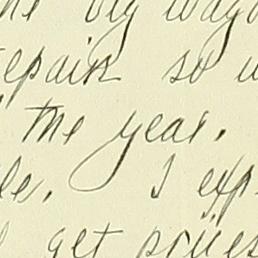 he big wago
epair so w
the year.
le. I exp
get prices